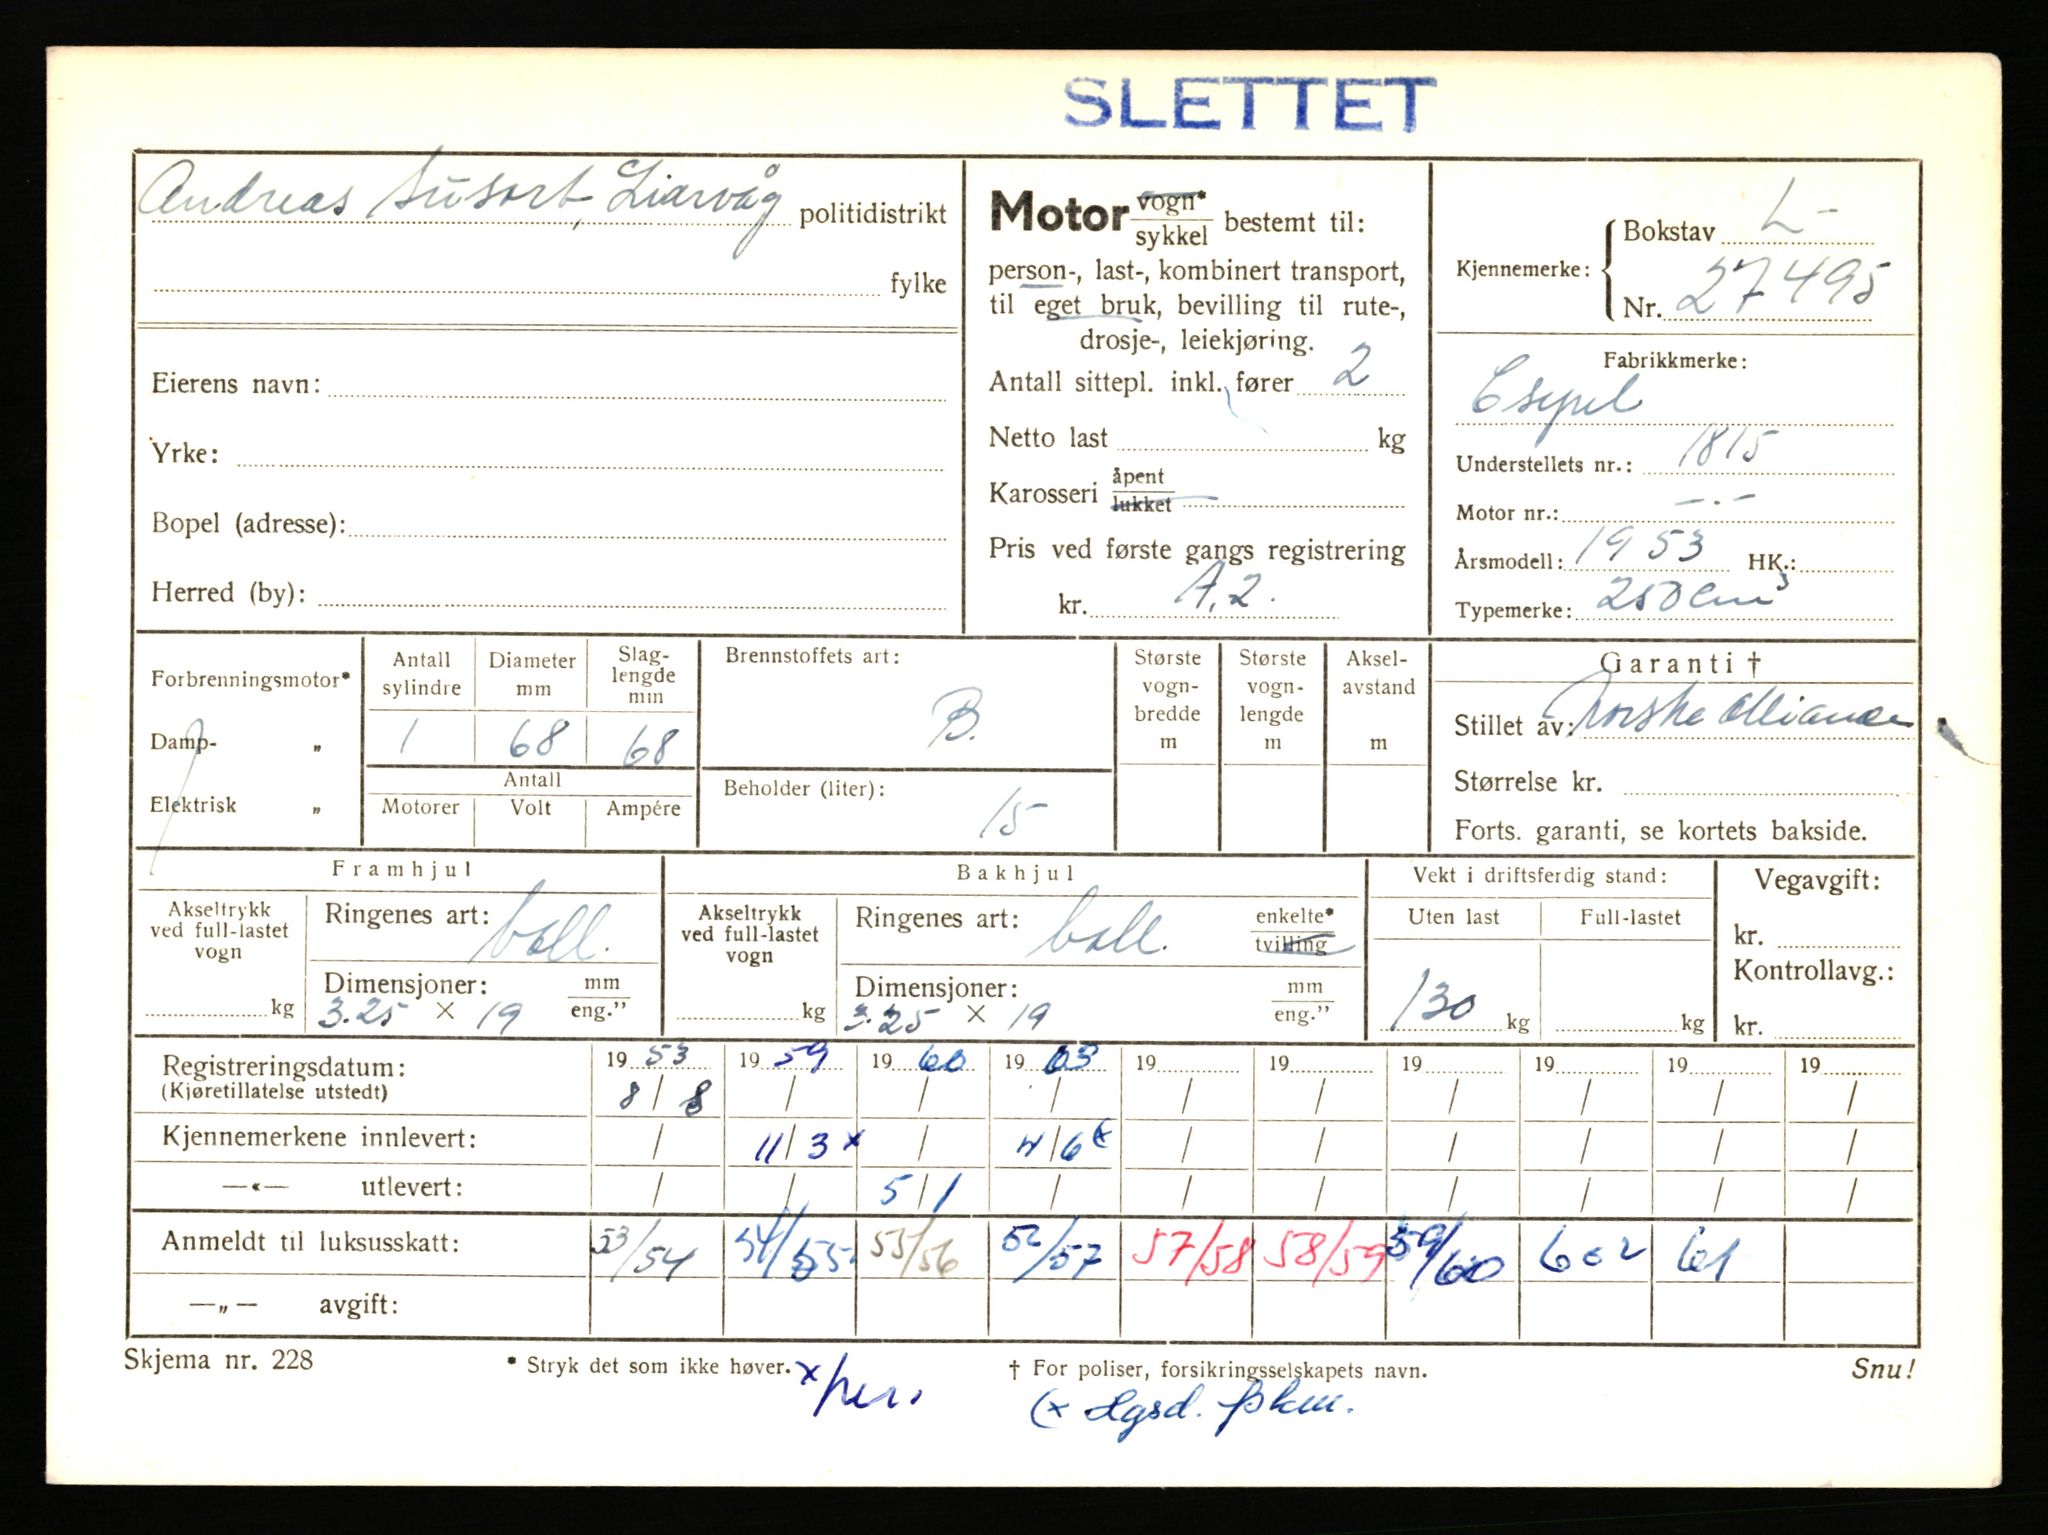 SLETTET
Andreas Susort, Liarvåg politidistrikt
fylke
Eierens navn:
Yrke:
Bopel (adresse):
Herred (by):
Motor vogn* / sykkel bestemt til:
person-, last-, kombinert transport,
til eget bruk, bevilling til rute-,
drosje-, leiekjøring.
Antall sittepl. inkl. fører 2
Netto last kg
Karosseri åpent / lukket
Pris ved første gangs registrering
kr. A.2.
Kjennemerke: Bokstav L-
Nr. 27495
Fabrikkmerke:
Csepel
Understellets nr.: 1815
Motor nr.: —.—
Årsmodell: 1953 HK.:
Typemerke: 250 cm3
Forbrenningsmotor*
Damp- „
Elektrisk „
Antall sylindre Diameter mm Slag-lengde mm
1 68 68
Antall
Motorer Volt Ampére
Brennstoffets art:
B.
Beholder (liter):
15
Største vogn-bredde m
Største vogn-lengde m
Aksel-avstand m
Garanti †
Stillet av: Norske Alliance
Størrelse kr.
Forts. garanti, se kortets bakside.
Framhjul
Akseltrykk ved full-lastet vogn
kg
Ringenes art: ball.
Dimensjoner: mm / eng."
3.25 × 19
Bakhjul
Akseltrykk ved full-lastet vogn
kg
Ringenes art: ball. enkelte* / tvilling
Dimensjoner: mm / eng."
3.25 × 19
Vekt i driftsferdig stand:
Uten last Full-lastet
130 kg kg
Vegavgift:
kr.
Kontrollavg.:
kr.
Registreringsdatum: 1953 1959 1960 1963 19 19 19 19 19 19
(Kjøretillatelse utstedt) 8/8 / / / / / / / / /
Kjennemerkene innlevert: / 11/3 x / 4/6 (x / / / / / /
—«— utlevert: / / 5/1 / / / / / / /
Anmeldt til luksusskatt: 53/54 54/55 55/56 56/57 57/58 58/59 59/60 602 61
—„— avgift:
Skjema nr. 228 * Stryk det som ikke høver. † For poliser, forsikringsselskapets navn. Snu!
x/pers
(x Lgsd.